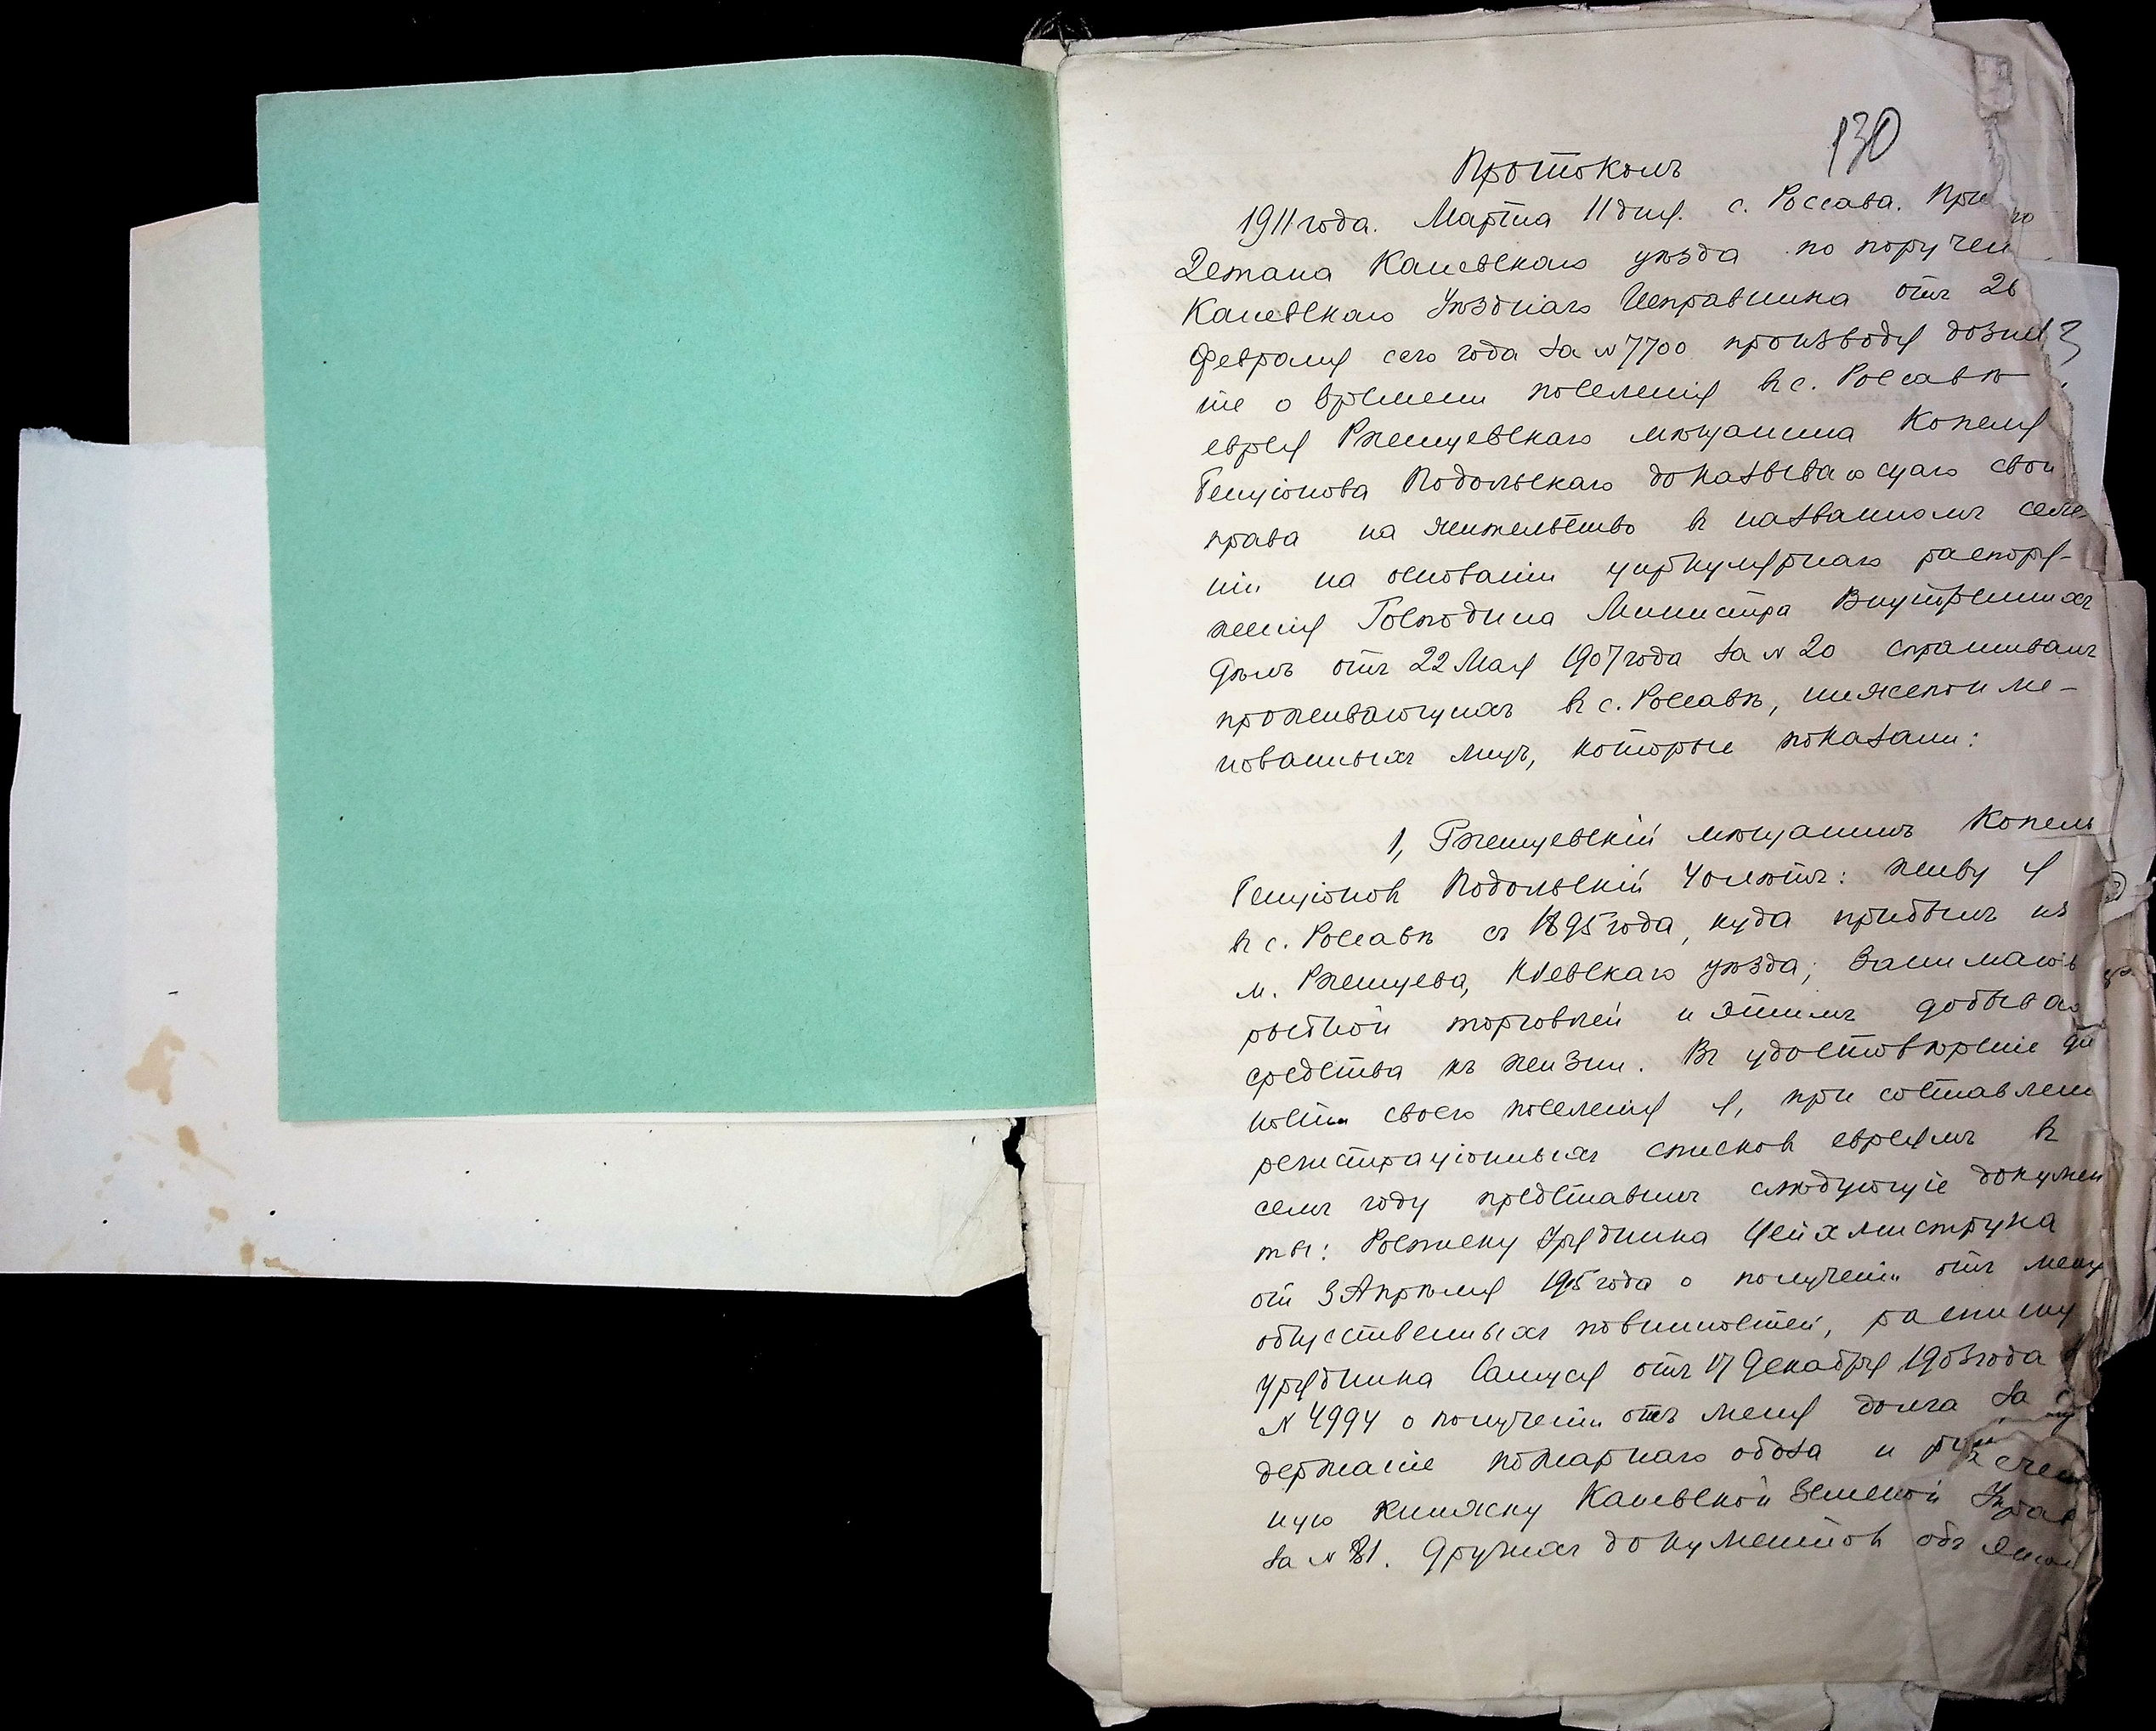 130
Протоколъ
1911 года. Марта 11 дня. с. Россава. При
2 етана Каневскаго уѣзда по поручен
Каневскаго Уѣзднаго Исправника отъ 26
Февраля сего года за № 7700 произвожу дозна
ніе о времени поселенія въ с. Россавѣ
еврея Ржищевскаго мѣщанина Копеля
Генціонова Подольскаго доказывающаго свои
права на жительство въ названномъ селе
ніи на основаніи циркулярнаго распоря-
женія Господина Министра Внутреннихъ
Дѣлъ отъ 22 Мая 1907 года за № 20 спрашивалъ
проживающихъ въ с. Россавѣ, нижепоиме-
нованныхъ лицъ, которые показали:
1, Ржищевскій мѣщанинъ Копель
Генціоновъ Подольскій живу я
въ с. Россавѣ съ 1895 года, куда прибылъ изъ
м. Ржищева, Кіевскаго уѣзда; занимаюсь
рыбной торговлей и этимъ добываю
средства къ жизни. Въ удостовѣреніе дѣ
ности своего поселенія я, при составлен
регистраціонныхъ списковъ евреямъ въ
семъ году представилъ слѣдующіе докумен
ты: Росписку Урядника Цейхмиструка
отъ 3 Апрѣля 1905 года о полученіи отъ меня
общественныхъ повинностей, расписку
урядника Сануся отъ 17 Декабря 1903 года
№ 4994 о полученіи отъ меня долга за со
держаніе пожарнаго обоза и
ную книжку Каневской Земской Управ
за № 81. Другихъ документовъ объ этом